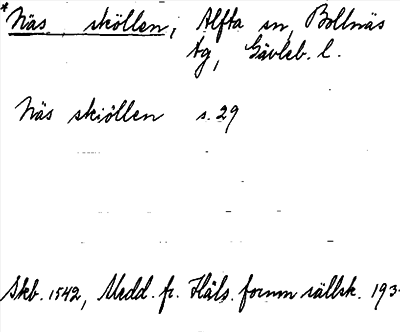 *Näs, sköllen, Alfta sn, Bollnäs
tg, Gävleb. l.
Näs skiöllen s. 29
Skb. 1542, Medd. fr. Häls. fornm sällsk. 193